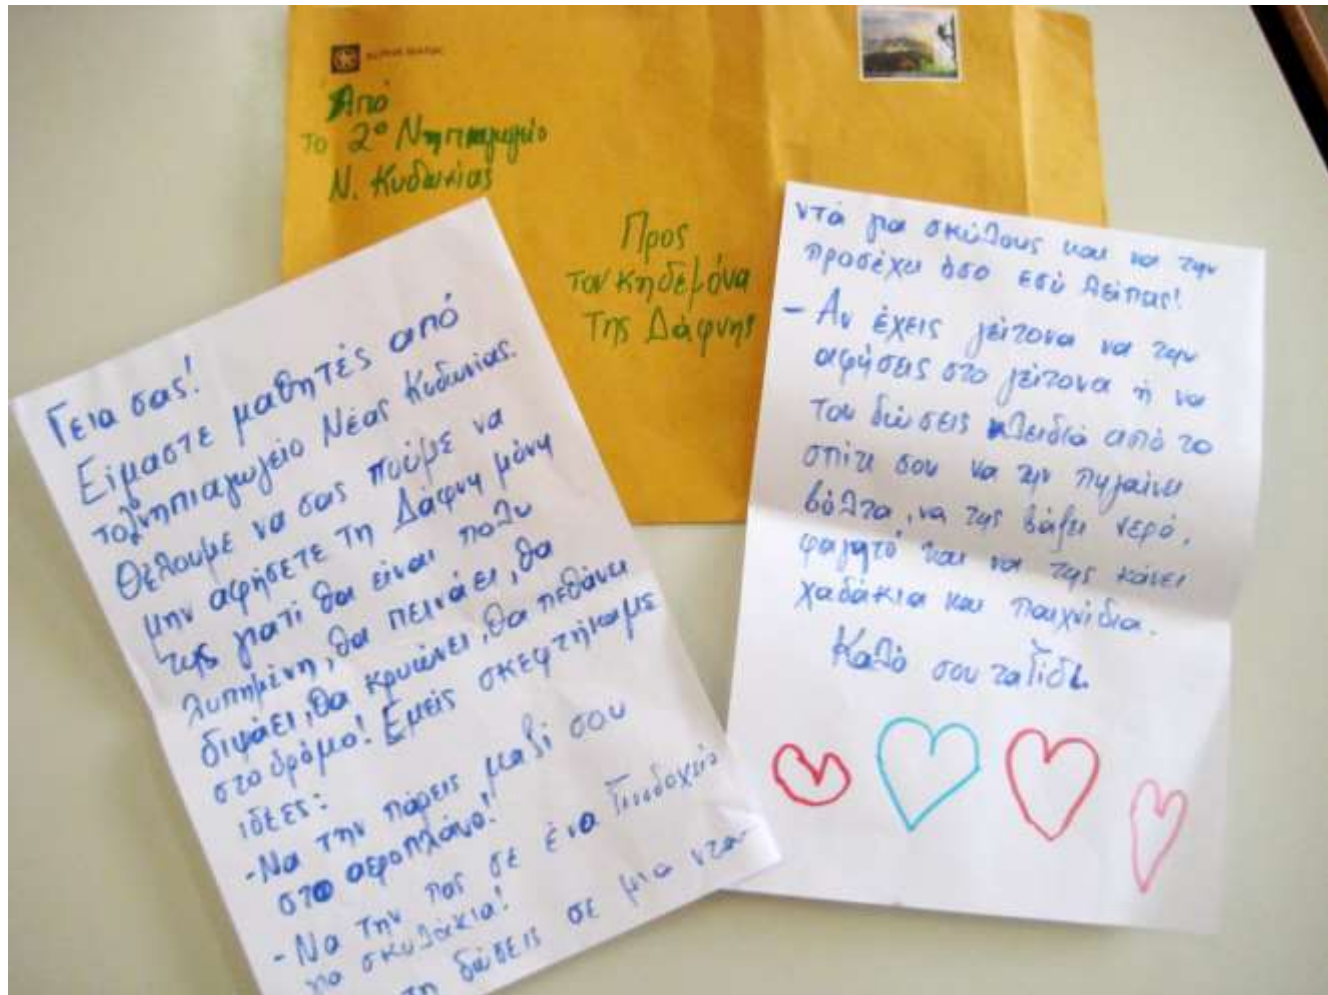 ALPHA BANK
Από
το 2ο Νηπιαγωγείο
Ν. Κυδωνίας
Προς
τον κηδεμόνα
της Δάφνης
Γεια σας!
Είμαστε μαθητές από
το 2ο νηπιαγωγείο Νέας Κυδωνίας.
Θέλουμε να σας πούμε να
μην αφήσετε τη Δάφνη μόνη
της γιατί θα είναι πολυ
λυπημένη, θα πεινάει, θα
διψάει, θα κρυώνει, θα πεθάνει
στο δρόμο! Εμείς σκεφτήκαμε
ιδέες:
- Να την πάρεις μαζί σου
στο αεροπλάνο!
- Να την πας σε ένα ξενοδοχείο
για σκυλάκια!
τη δώσεις σε μια ντα-
ντά για σκύλους και να την
προσέχει όσο εσύ λείπεις!
- Αν έχεις γείτονα να την
αφήσεις στο γείτονα ή να
του δώσεις κλειδιά από το
σπίτι σου να την πηγαίνει
βόλτα, να της βάζει νερό,
φαγητό και να της κάνει
χαδάκια και παιχνίδια.
Καλό σου ταξίδι.